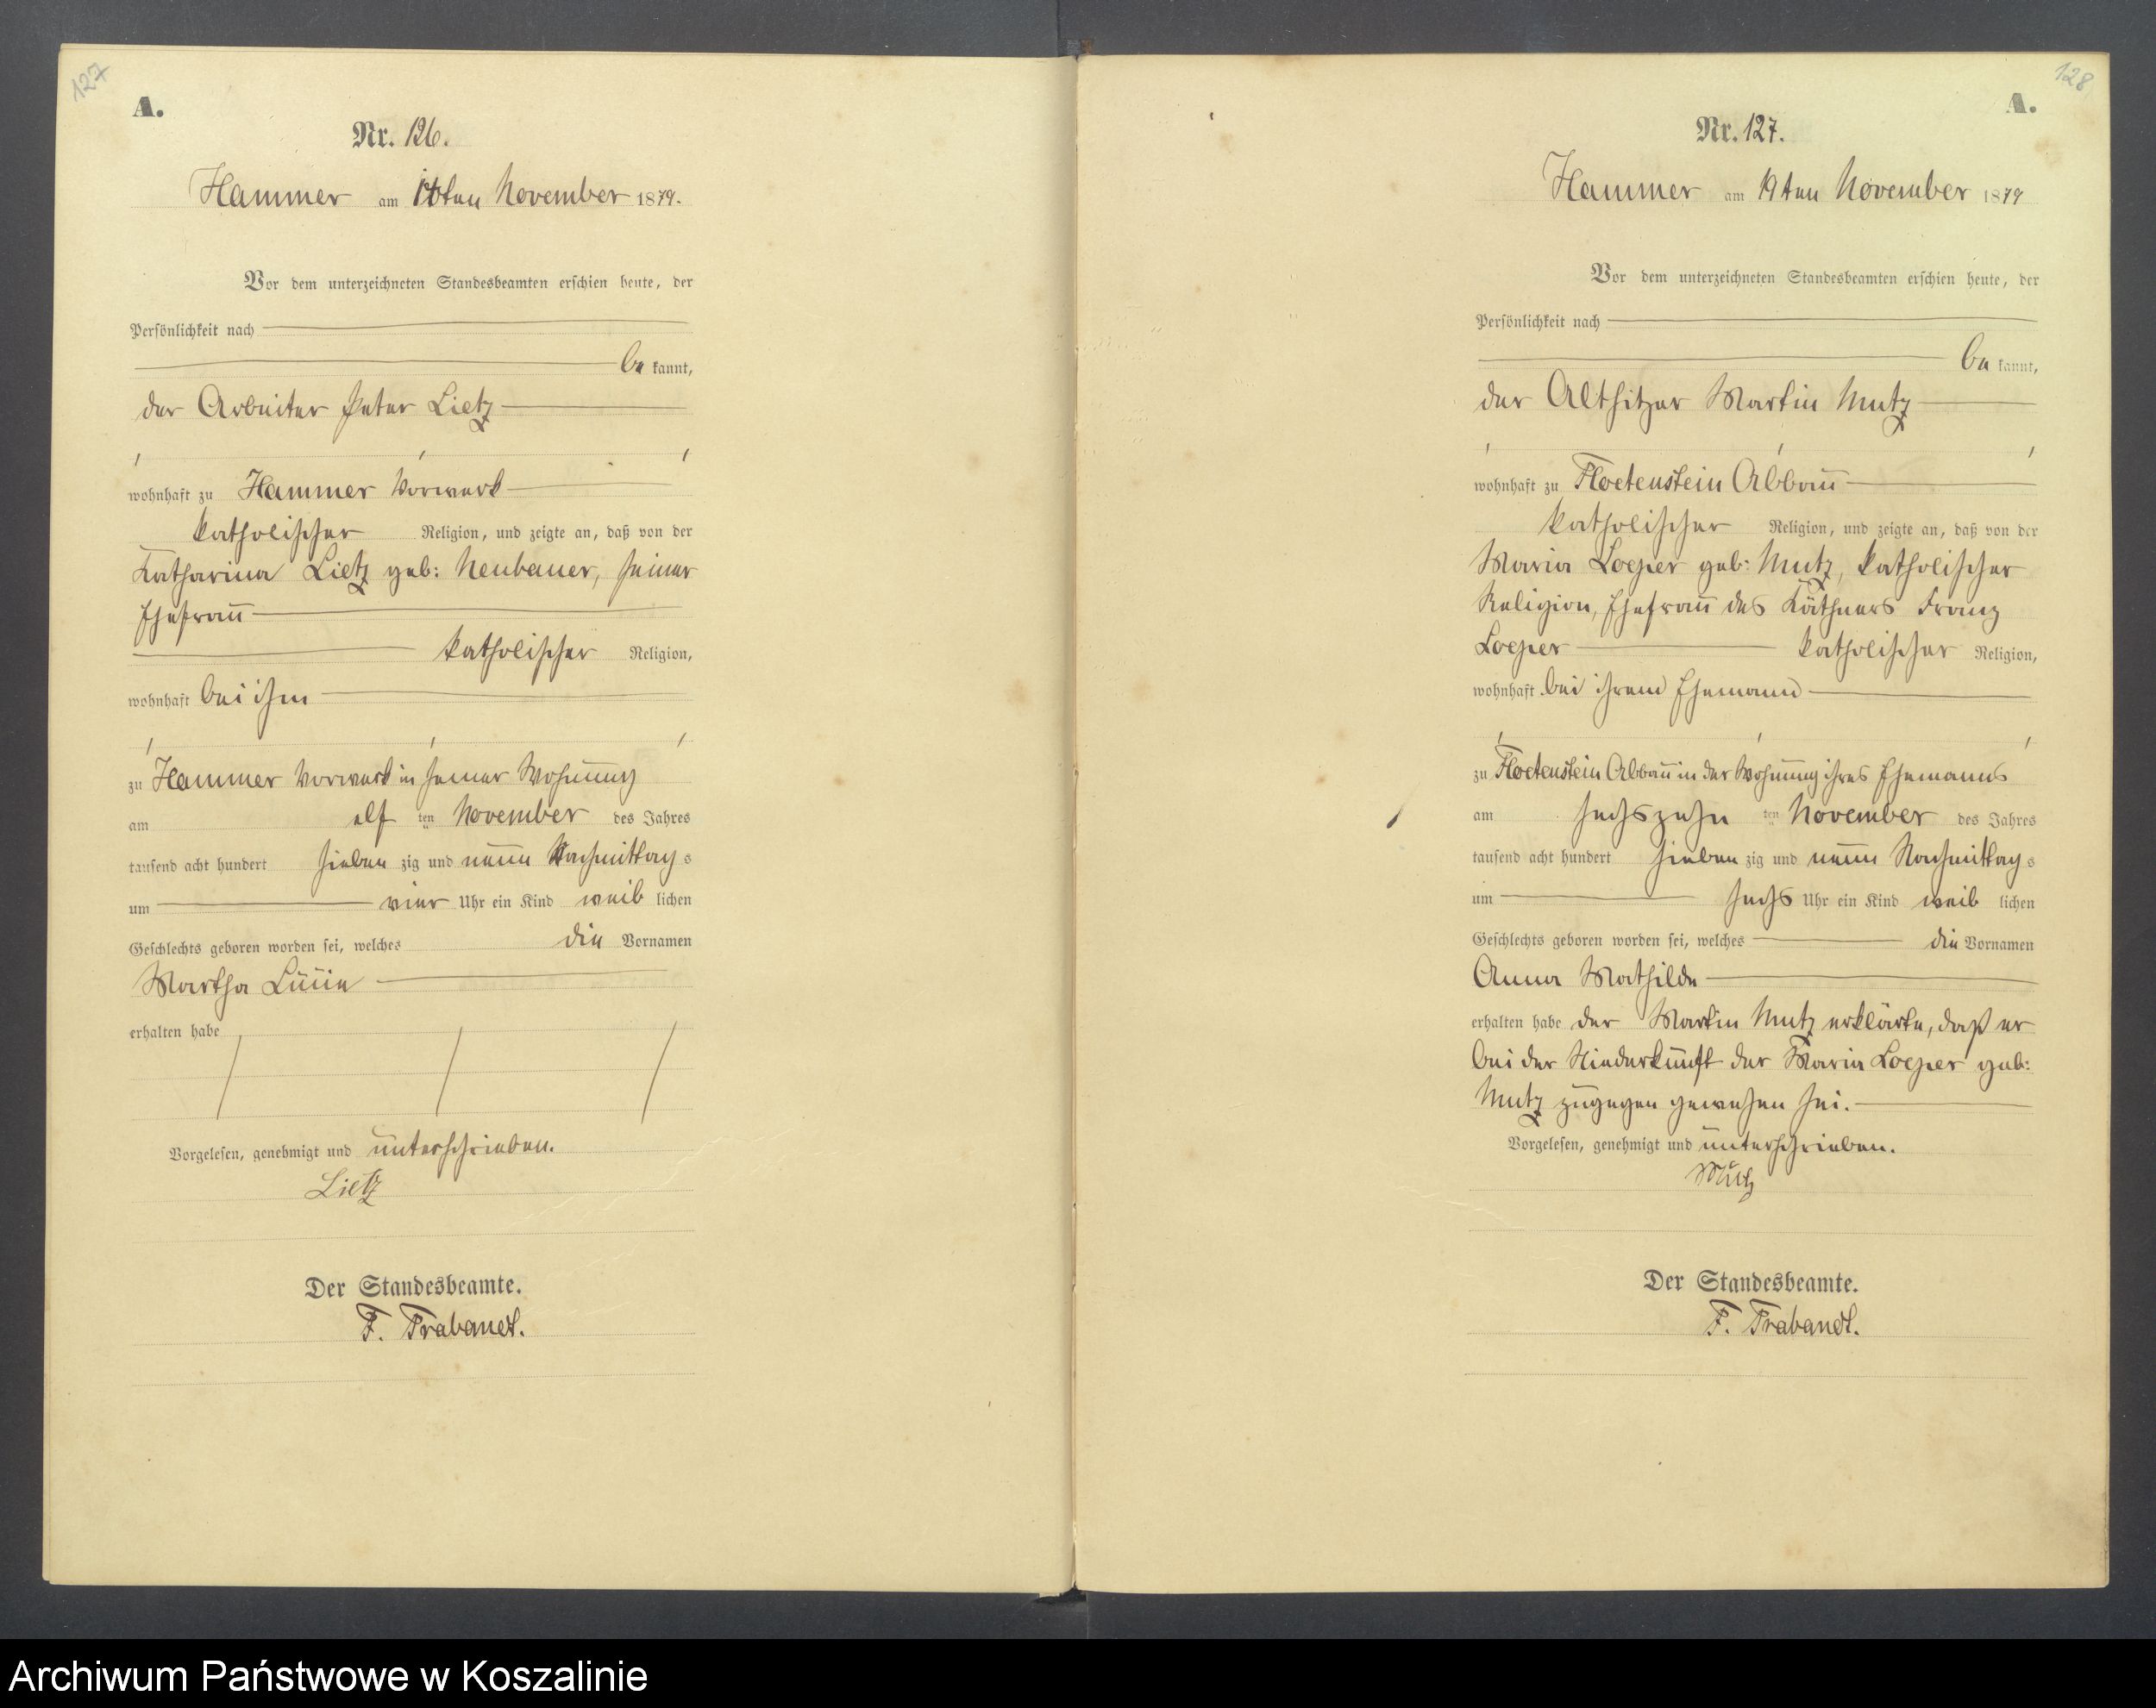 127
A.
Nr. 126.
Hammer am ten November 1879.
Vor dem unterzeichneten Standesbeamten erschien heute, der
Persönlichkeit nach
be kannt,
der Arbeiter Peter Lietz
wohnhaft zu Hammer Vorwerk
katholischer Religion, und zeigte an, daß von der
Katharina Lietz geb: Neubauer, seiner
Ehefrau
katholischer Religion,
wohnhaft bei ihm
zu Hammer Vorwerk in seiner Wohnung
am elf ten November des Jahres
tausend acht hundert sieben zig und neun Nachmittag s
um vier Uhr ein Kind weib lichen
Geschlechts geboren worden sei, welches die Vornamen
Martha
erhalten habe
Vorgelesen, genehmigt und unterschrieben.
Lietz
Der Standesbeamte.
F. Trabandt.
128
A.
Nr. 127.
Hammer am 19ten November 1879
Vor dem unterzeichneten Standesbeamten erschien heute, der
Persönlichkeit nach
be kannt,
der Altsitzer Martin Mutz
wohnhaft zu Floetenstein Abbau
katholischer Religion, und zeigte an, daß von der
Maria Loeper geb: Mutz, katholischer
Religion, Ehefrau des Käthners Franz
Loeper katholischer Religion,
wohnhaft bei ihrem Ehemann
zu Floetenstein Abbau in der Wohnung ihres Ehemanns
am sechszehn ten November des Jahres
tausend acht hundert sieben zig und neun Nachmittag s
um sechs Uhr ein Kind weib lichen
Geschlechts geboren worden sei, welches die Vornamen
Anna Mathilde
erhalten habe der Martin Mutz erklärte, daß er
bei der Niederkunft der Maria Loeper geb:
Mutz zugegen gewesen sei.
Vorgelesen, genehmigt und unterschrieben.
Mutz
Der Standesbeamte.
F. Trabandt.
Archiwum Państwowe w Koszalinie